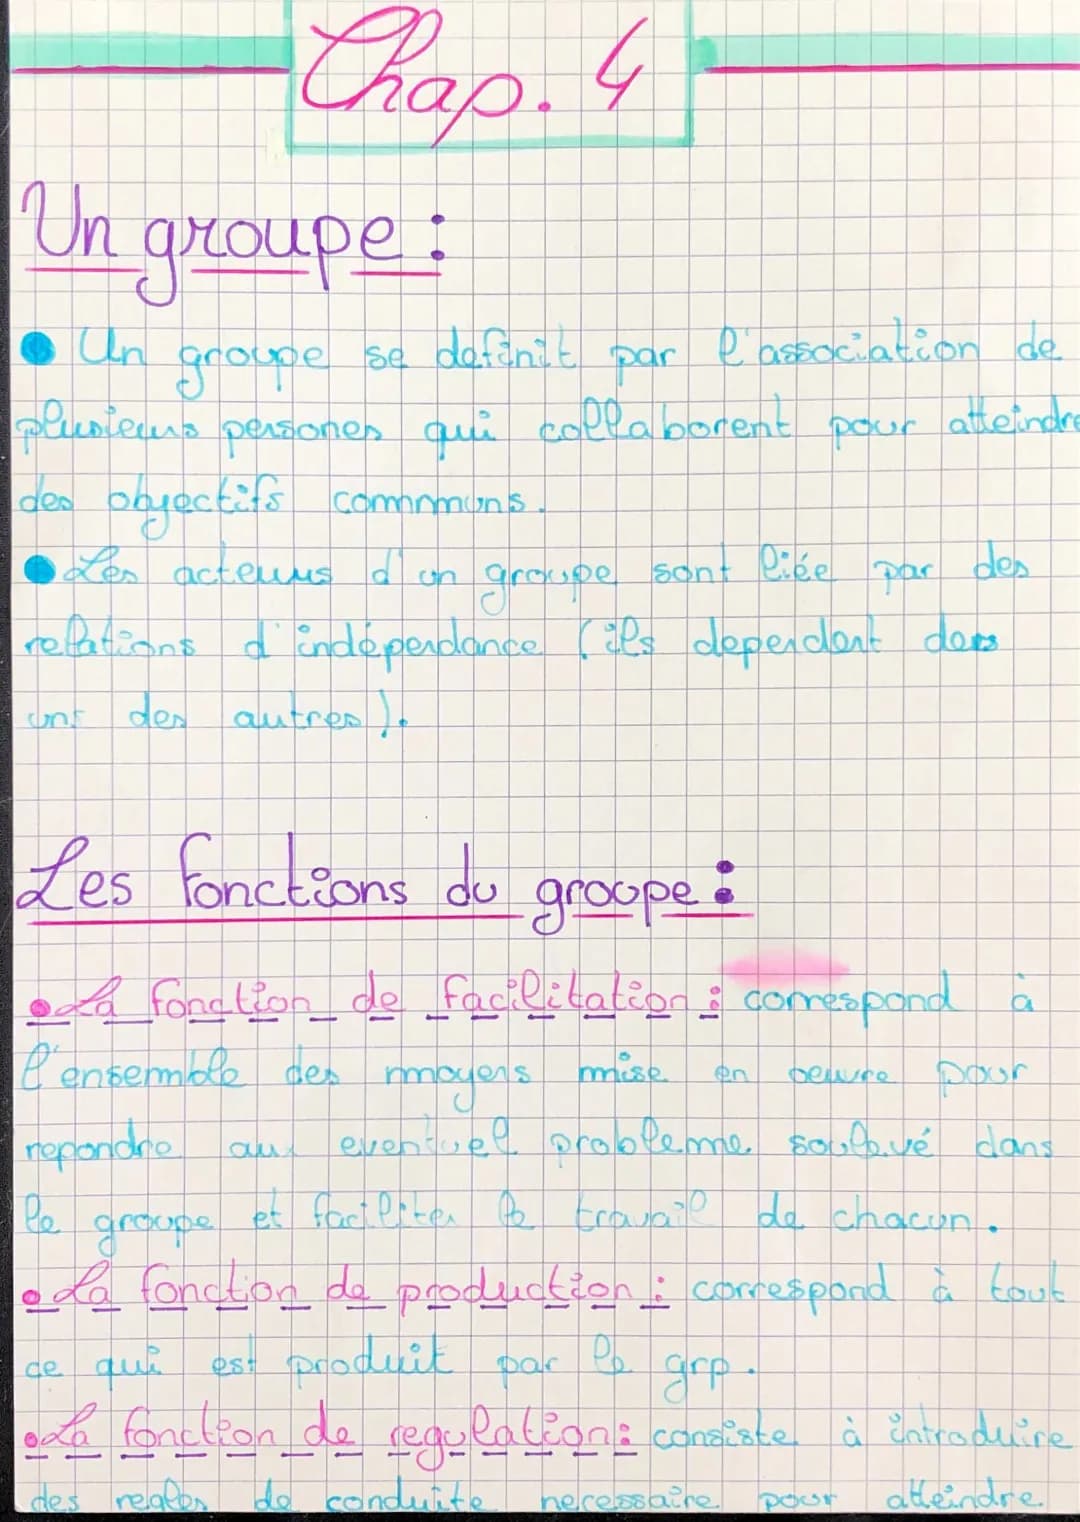 Chap. 4
Un groupe :
● Un groupe se definit par l'association de
plusieurs persones qui collaborent pour atteindre
des objectifs commmuns.
● Les acteurs d'un groupe sont liée par des
relations d'indépendance (ils dependent des
uns des autres).
Les fonctions du groupe :
• La fonction de facilitation : correspond à
l'ensemble des moyens mise en oeuvre pour
repondre aux eventuel probleme soulevé dans
le groupe et faciliter le travail de chacun.
• La fonction de production : correspond à tout
ce qui est produit par le grp.
• La fonction de regulation : consiste à introduire
des regles de conduite necessaire pour atteindre